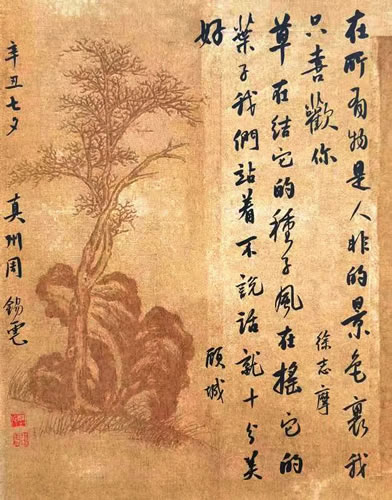 在所有物是人非的景色裏我
只喜歡你
徐志摩
草在結它的種子風在搖它的
葉子我們站着不說話就十分美
好
顾城
辛丑七夕
真州周錫